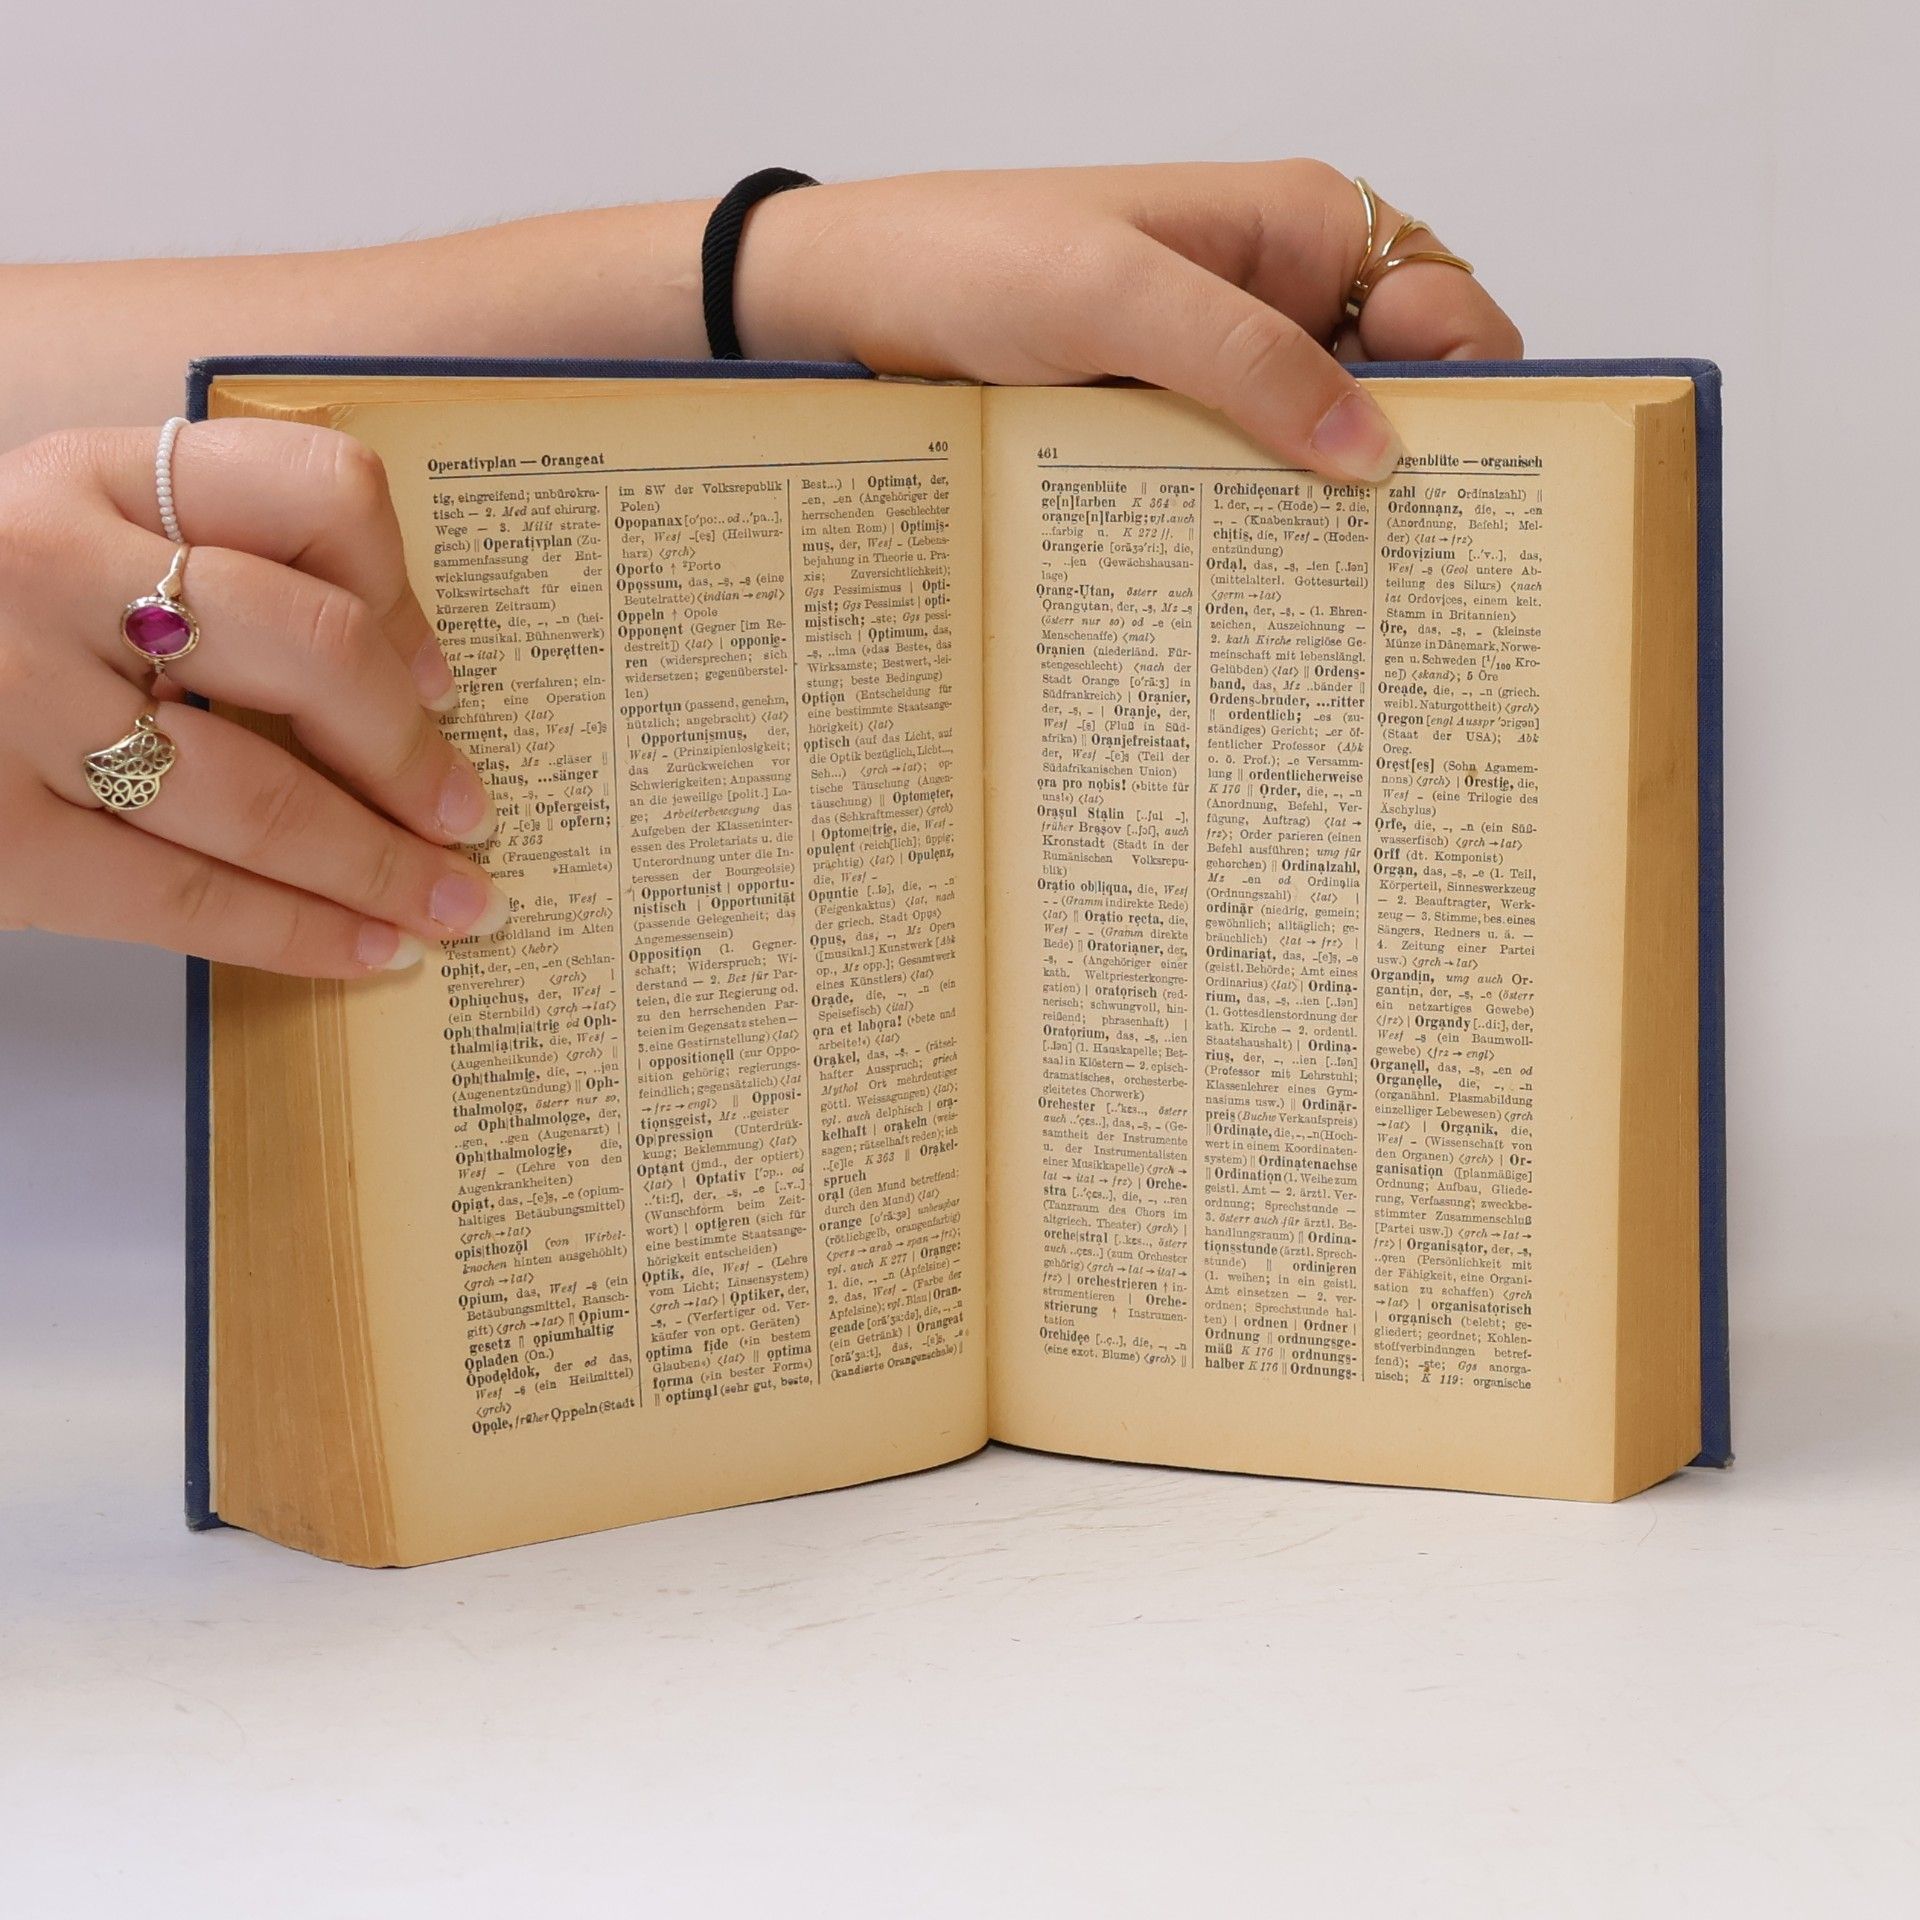 Operativplan — Orangeat
460
tig, eingreifend; unbürokra-
tisch — 2. Med auf chirurg.
Wege — 3. Milit strate-
gisch) || Operativplan (Zu-
sammenfassung der Ent-
wicklungsaufgaben der
Volkswirtschaft für einen
kürzeren Zeitraum)
Operette, die, –, –n (hei-
teres musikal. Bühnenwerk)
lat → ital⟩ || Operetten-
hlager
erieren (verfahren; ein-
eine Operation
durchführen) ⟨lat⟩
perment, das, Wesf –[e]s
Mineral) ⟨lat⟩
Mz ..gläser ||
haus, ...sänger
das, –s, – ⟨lat⟩ ||
reit || Opfergeist,
–[e]s || opfern;
K 363
(Frauengestalt in
»Hamlet«)
die, Wesf –
verehrung) ⟨grch⟩
(Goldland im Alten
Testament) ⟨hebr⟩
Ophit, der, –en, –en (Schlan-
genverehrer) ⟨grch⟩ |
Ophiuchus, der, Wesf –
(ein Sternbild) ⟨grch → lat⟩
Oph|thalm|ia|trie od Oph-
thalm|ia|trik, die, Wesf –
(Augenheilkunde) ⟨grch⟩ ||
Oph|thalmie, die, –, ..jen
(Augenentzündung) || Oph-
thalmolog, österr nur so,
od Oph|thalmologe, der,
..gen, ..gen (Augenarzt) |
Oph|thalmologie, die,
Wesf – (Lehre von den
Augenkrankheiten)
Opiat, das, –[e]s, –e (opium-
haltiges Betäubungsmittel)
⟨grch → lat⟩
opis|thozöl (von Wirbel-
knochen hinten ausgehöhlt)
⟨grch → lat⟩
Opium, das, Wesf –s (ein
Betäubungsmittel, Rausch-
gift) ⟨grch → lat⟩ || Opium-
gesetz || opiumhaltig
Opladen (On.)
Opodeldok, der od das,
Wesf –s (ein Heilmittel)
⟨grch⟩
Opole, früher Oppeln (Stadt
im SW der Volksrepublik
Polen)
Opopanax [o'po:.. od ..'pa..],
der, Wesf –[es] (Heilwurz-
harz) ⟨grch⟩
Oporto ↑ ²Porto
Opossum, das, –s, –s (eine
Beutelratte) ⟨indian → engl⟩
Oppeln ↑ Opole
Opponent (Gegner [im Re-
destreit]) ⟨lat⟩ | opponie-
ren (widersprechen; sich
widersetzen; gegenüberstel-
len)
opportun (passend, genehm,
nützlich; angebracht) ⟨lat⟩
| Opportunismus, der,
Wesf – (Prinzipienlosigkeit;
das Zurückweichen vor
Schwierigkeiten; Anpassung
an die jeweilige [polit.] La-
ge; Arbeiterbewegung das
Aufgeben der Klasseninter-
essen des Proletariats u. die
Unterordnung unter die In-
teressen der Bourgeoisie)
| Opportunist | opportu-
nistisch | Opportunität
(passende Gelegenheit; das
Angemessensein)
Opposition (1. Gegner-
schaft; Widerspruch; Wi-
derstand — 2. Bez für Par-
teien, die zur Regierung od.
zu den herrschenden Par-
teien im Gegensatz stehen —
3. eine Gestirnstellung) ⟨lat⟩
| oppositionell (zur Oppo-
sition gehörig; regierungs-
feindlich; gegensätzlich) ⟨lat
→ frz → engl⟩ || Opposi-
tionsgeist, Mz ..geister
Op|pression (Unterdrük-
kung; Beklemmung) ⟨lat⟩
Optant (jmd., der optiert)
⟨lat⟩ | Optativ ['ɔp.. od
..'ti:f], der, –s, –e [..v..]
(Wunschform beim Zeit-
wort) | optieren (sich für
eine bestimmte Staatsange-
hörigkeit entscheiden)
Optik, die, Wesf – (Lehre
vom Licht; Linsensystem)
⟨grch → lat⟩ | Optiker, der,
–s, – (Verfertiger od. Ver-
käufer von opt. Geräten)
optima fide (»in bestem
Glauben«) ⟨lat⟩ || optima
forma (»in bester Form«)
|| optimal (sehr gut, beste,
Best...) | Optimat, der,
–en, –en (Angehöriger der
herrschenden Geschlechter
im alten Rom) | Optimis-
mus, der, Wesf – (Lebens-
bejahung in Theorie u. Pra-
xis; Zuversichtlichkeit);
Ggs Pessimismus | Opti-
mist; Ggs Pessimist | opti-
mistisch; –ste; Ggs pessi-
mistisch | Optimum, das,
–s, ..ima (»das Beste«, das
Wirksamste; Bestwert, -lei-
stung; beste Bedingung)
Option (Entscheidung für
eine bestimmte Staatsange-
hörigkeit) ⟨lat⟩
optisch (auf das Licht, auf
die Optik bezüglich, Licht...,
Seh...) ⟨grch → lat⟩; op-
tische Täuschung (Augen-
täuschung) || Optometer,
das (Sehkraftmesser) ⟨grch⟩
| Optome|trie, die, Wesf –
opulent (reich[lich]; üppig;
prächtig) ⟨lat⟩ | Opulenz,
die, Wesf –
Opuntie [..iə], die, –, –n
(Feigenkaktus) ⟨lat, nach
der griech. Stadt Opus⟩
Opus, das, –, Mz Opera
([musikal.] Kunstwerk [Abk
op., Mz opp.]; Gesamtwerk
eines Künstlers) ⟨lat⟩
Orade, die, –, –n (ein
Speisefisch) ⟨ital⟩
ora et labora! (»bete und
arbeite!«) ⟨lat⟩
Orakel, das, –s, – (rätsel-
hafter Ausspruch; griech
Mythol Ort mehrdeutiger
göttl. Weissagungen) ⟨lat⟩;
vgl. auch delphisch | ora-
kelhaft | orakeln (weis-
sagen; rätselhaft reden); ich
..[e]le K 363 || Orakel-
spruch
oral (den Mund betreffend;
durch den Mund) ⟨lat⟩
orange [o'rã:ʒə] unbeugbar
(rötlichgelb, orangenfarbig)
⟨pers → arab → span → frz⟩;
vgl. auch K 277 | Orange:
1. die, –, –n (Apfelsine) —
2. das, Wesf – (Farbe der
Apfelsine); vgl. Blau | Oran-
geade [orã'ʒa:də], die, –, –n
(ein Getränk) | Orangeat
[orã'ʒa:t], das, –[e]s, –e
(kandierte Orangenschale) ||
461
genblüte — organisch
Orangenblüte || oran-
ge[n]farben K 364 od
orange[n]farbig; vgl. auch
...farbig u. K 272 ff. ||
Orangerie [orãʒə'ri:], die,
–, ..jen (Gewächshausan-
lage)
Orang-Utan, österr auch
Orangutan, der, –s, Mz –s
(österr nur so) od –e (ein
Menschenaffe) ⟨mal⟩
Oranien (niederländ. Für-
stengeschlecht) ⟨nach der
Stadt Orange [o'rã:ʒ] in
Südfrankreich⟩ | Oranier,
der, –s, – | Oranje, der,
Wesf –[s] (Fluß in Süd-
afrika) || Oranjefreistaat,
der, Wesf –[e]s (Teil der
Südafrikanischen Union)
ora pro nobis! (»bitte für
uns!«) ⟨lat⟩
Orașul Stalin [..ʃul –],
früher Brașov [..ʃɔf], auch
Kronstadt (Stadt in der
Rumänischen Volksrepu-
blik)
Oratio ob|liqua, die, Wesf
– – (Gramm indirekte Rede)
⟨lat⟩ || Oratio recta, die,
Wesf – – (Gramm direkte
Rede) || Oratorianer, der,
–s, – (Angehöriger einer
kath. Weltpriesterkongre-
gation) | oratorisch (red-
nerisch; schwungvoll, hin-
reißend; phrasenhaft) |
Oratorium, das, –s, ..ien
[..iən] (1. Hauskapelle; Bet-
saal in Klöstern — 2. episch-
dramatisches, orchesterbe-
gleitetes Chorwerk)
Orchester [..'kɛs.., österr
auch ..'çɛs..], das, –s, – (Ge-
samtheit der Instrumente
u. der Instrumentalisten
einer Musikkapelle) ⟨grch →
lat → ital → frz⟩ | Orche-
stra [..'çɛs..], die, –, ..ren
(Tanzraum des Chors im
altgriech. Theater) ⟨grch⟩ |
orche|stral [..kɛs.., österr
auch ..çɛs..] (zum Orchester
gehörig) ⟨grch → lat → ital →
frz⟩ | orchestrieren ↑ in-
strumentieren | Orche-
strierung ↑ Instrumen-
tation
Orchidee [..ç..], die, –, –n
(eine exot. Blume) ⟨grch⟩ ||
Orchideenart || Orchis:
1. der, –, – (Hode) — 2. die,
–, – (Knabenkraut) | Or-
chitis, die, Wesf – (Hoden-
entzündung)
Ordal, das, –s, –ien [..iən]
(mittelalterl. Gottesurteil)
⟨germ → lat⟩
Orden, der, –s, – (1. Ehren-
zeichen, Auszeichnung —
2. kath Kirche religiöse Ge-
meinschaft mit lebenslängl.
Gelübden) ⟨lat⟩ || Ordens-
band, das, Mz ..bänder ||
Ordensbruder, ...ritter
|| ordentlich; –es (zu-
ständiges) Gericht; –er öf-
fentlicher Professor (Abk
o. ö. Prof.); –e Versamm-
lung || ordentlicherweise
K 176 || Order, die, –, –n
(Anordnung, Befehl, Ver-
fügung, Auftrag) ⟨lat →
frz⟩; Order parieren (einen
Befehl ausführen; umg für
gehorchen) || Ordinalzahl,
Mz –en od Ordinalia
(Ordnungszahl) ⟨lat⟩ |
ordinär (niedrig, gemein;
gewöhnlich; alltäglich; ge-
bräuchlich) ⟨lat → frz⟩ |
Ordinariat, das, –[e]s, –e
(geistl. Behörde; Amt eines
Ordinarius) ⟨lat⟩ | Ordina-
rium, das, –s, ..ien [..iən]
(1. Gottesdienstordnung der
kath. Kirche — 2. ordentl.
Staatshaushalt) | Ordina-
rius, der, –, ..ien [..iən]
(Professor mit Lehrstuhl;
Klassenlehrer eines Gym-
nasiums usw.) || Ordinär-
preis (Buchw Verkaufspreis)
|| Ordinate, die, –, –n (Hoch-
wert in einem Koordinaten-
system) || Ordinatenachse
|| Ordination (1. Weihe zum
geistl. Amt — 2. ärztl. Ver-
ordnung; Sprechstunde —
3. österr auch für ärztl. Be-
handlungsraum) || Ordina-
tionsstunde (ärztl. Sprech-
stunde) || ordinieren
(1. weihen; in ein geistl.
Amt einsetzen — 2. ver-
ordnen; Sprechstunde hal-
ten) | ordnen | Ordner |
Ordnung || ordnungsge-
mäß K 176 || ordnungs-
halber K 176 || Ordnungs-
zahl (für Ordinalzahl) ||
Ordonnanz, die, –, –en
(Anordnung, Befehl; Mel-
der) ⟨lat → frz⟩
Ordovizium [..'v..], das,
Wesf –s (Geol untere Ab-
teilung des Silurs) ⟨nach
lat Ordovices, einem kelt.
Stamm in Britannien⟩
Öre, das, –s, – (kleinste
Münze in Dänemark, Norwe-
gen u. Schweden [1/100 Kro-
ne]) ⟨skand⟩; 5 Öre
Oreade, die, –, –n (griech.
weibl. Naturgottheit) ⟨grch⟩
Oregon [engl Ausspr 'ɔrigən]
(Staat der USA); Abk
Oreg.
Orest[es] (Sohn Agamem-
nons) ⟨grch⟩ | Orestie, die,
Wesf – (eine Trilogie des
Äschylus)
Orfe, die, –, –n (ein Süß-
wasserfisch) ⟨grch → lat⟩
Orff (dt. Komponist)
Organ, das, –s, –e (1. Teil,
Körperteil, Sinneswerkzeug
— 2. Beauftragter, Werk-
zeug — 3. Stimme, bes. eines
Sängers, Redners u. ä. —
4. Zeitung einer Partei
usw.) ⟨grch → lat⟩
Organdin, umg auch Or-
gantin, der, –s, –e (österr
ein netzartiges Gewebe)
⟨frz⟩ | Organdy [..di:], der,
Wesf –s (ein Baumwoll-
gewebe) ⟨frz → engl⟩
Organell, das, –s, –en od
Organelle, die, –, –n
(organähnl. Plasmabildung
einzelliger Lebewesen) ⟨grch
→ lat⟩ | Organik, die,
Wesf – (Wissenschaft von
den Organen) ⟨grch⟩ | Or-
ganisation ([planmäßige]
Ordnung; Aufbau, Gliede-
rung, Verfassung; zweckbe-
stimmter Zusammenschluß
[Partei usw.]) ⟨grch → lat →
frz⟩ | Organisator, der, –s,
..oren (Persönlichkeit mit
der Fähigkeit, eine Organi-
sation zu schaffen) ⟨grch
→ lat⟩ | organisatorisch
| organisch (belebt; ge-
gliedert; geordnet; Kohlen-
stoffverbindungen betref-
fend); –ste; Ggs anorga-
nisch; K 119: organische